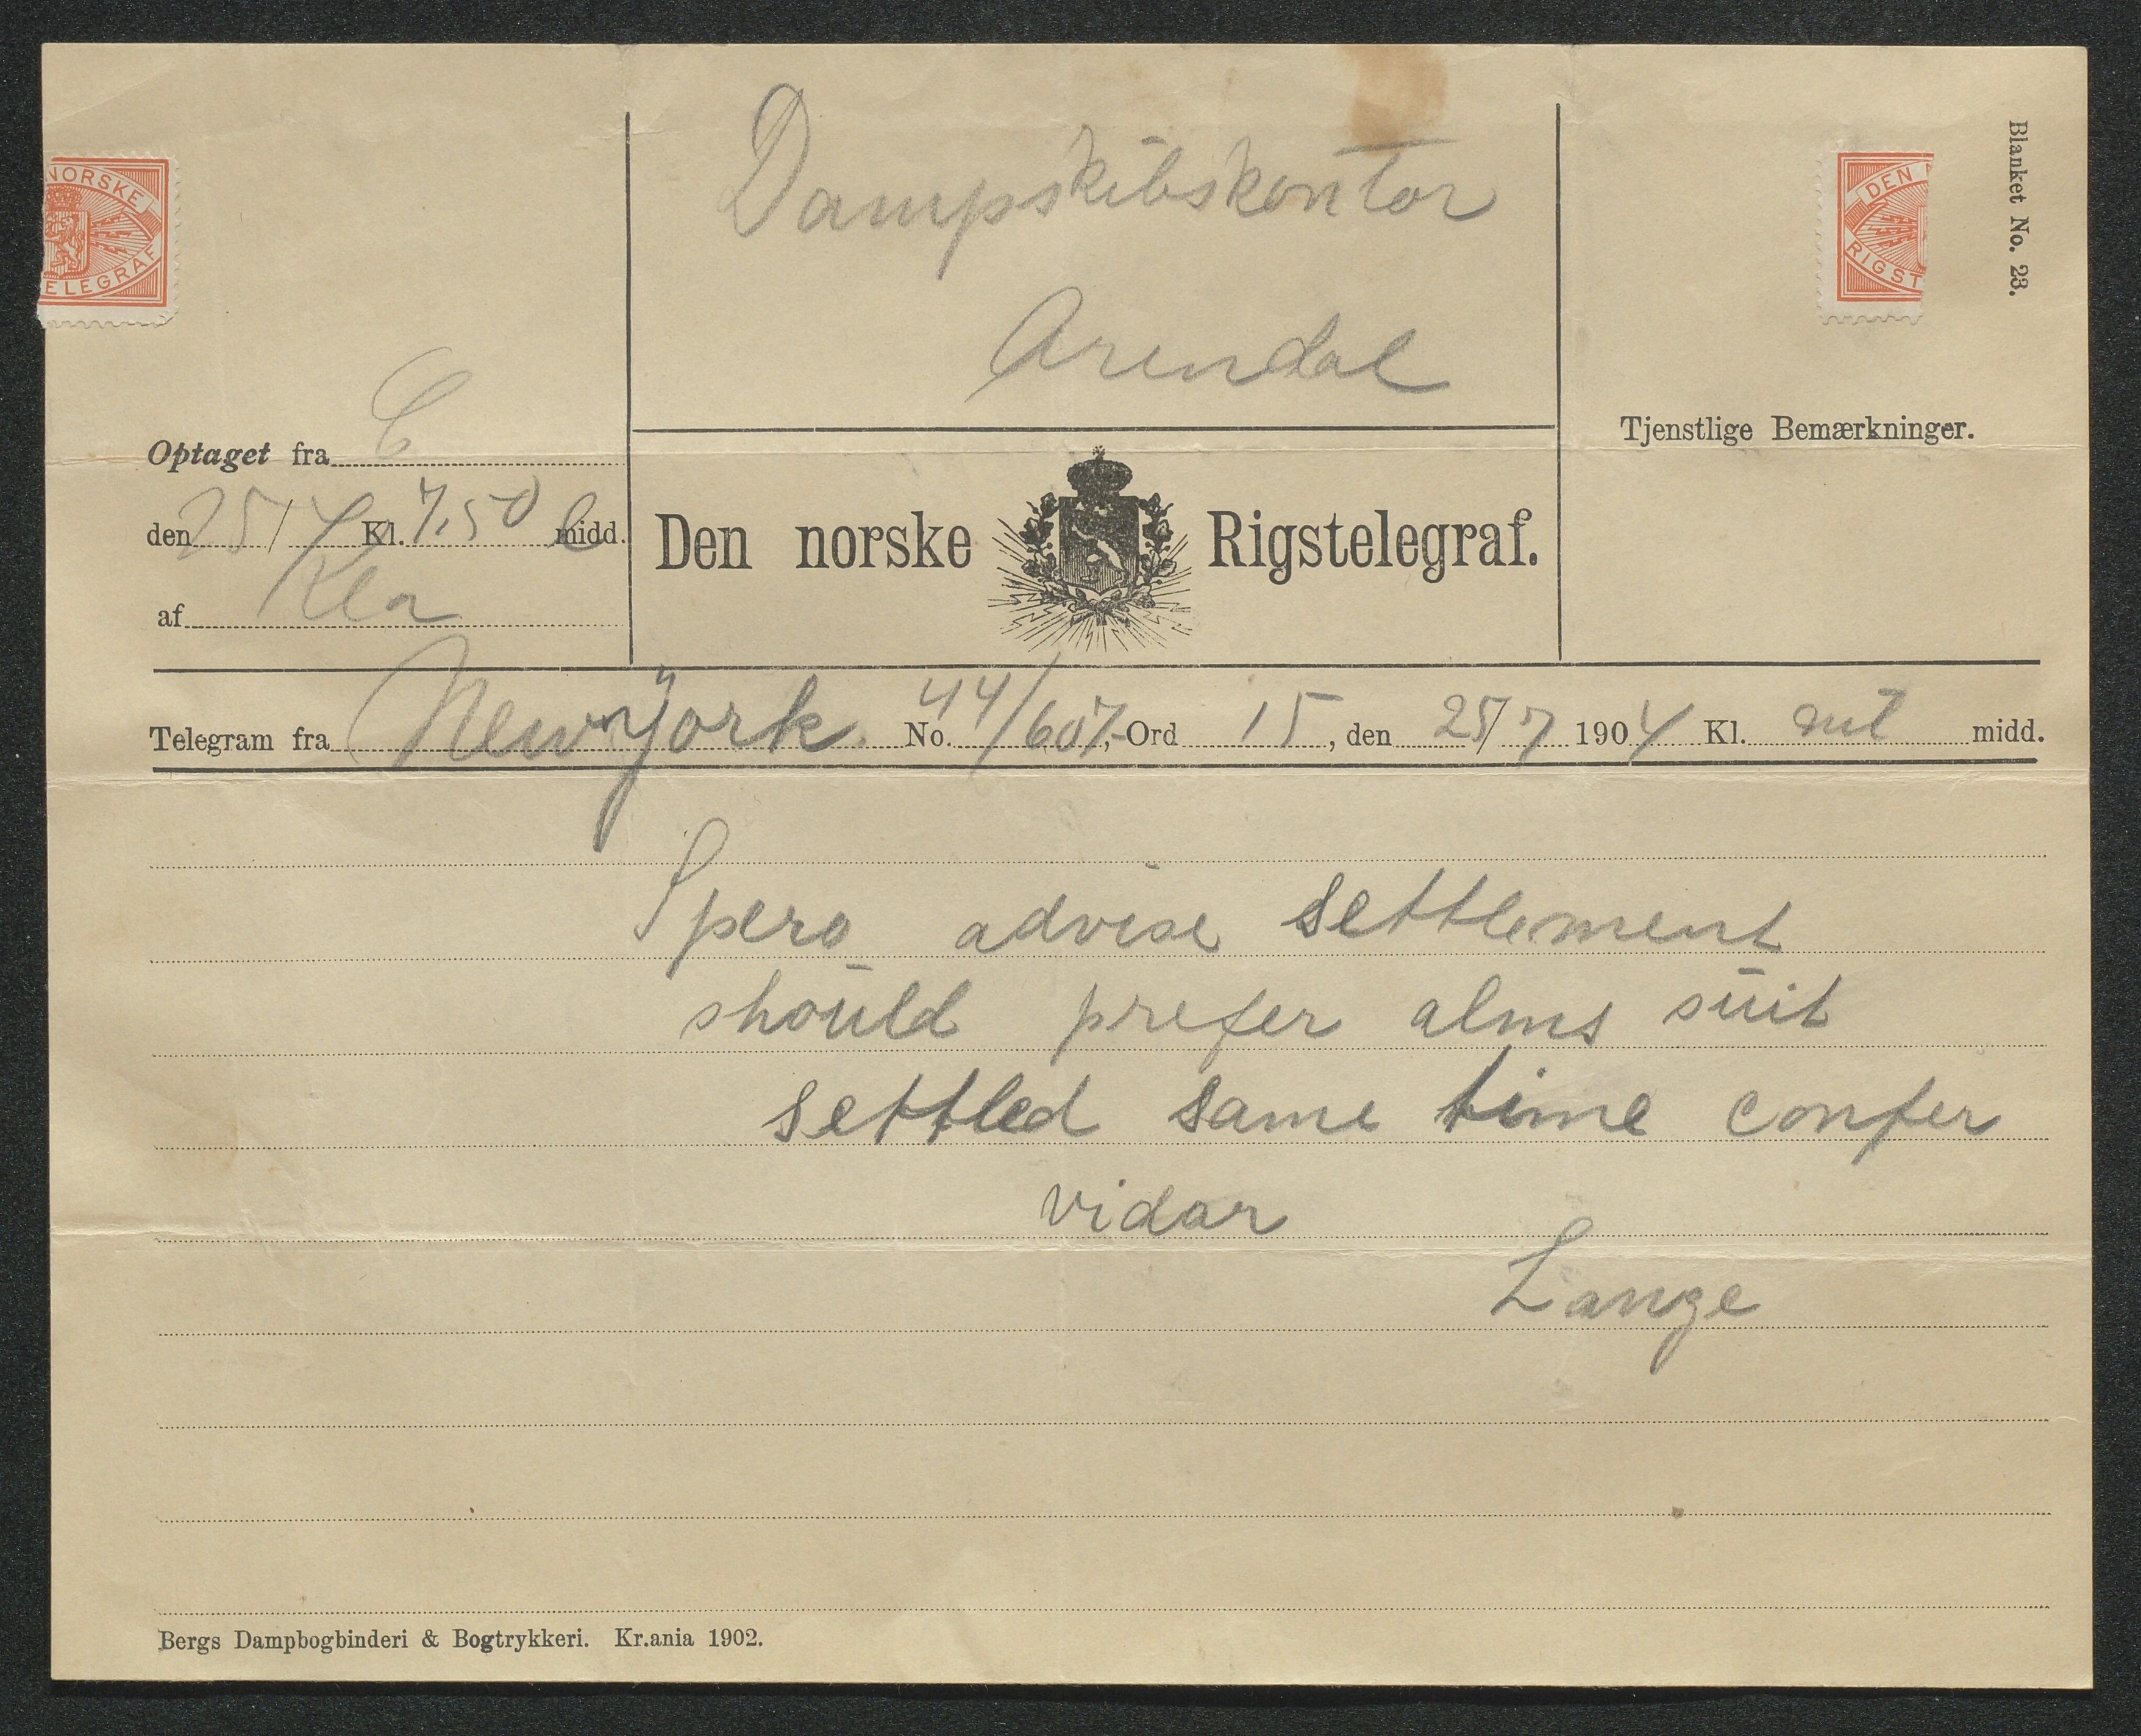 Dampskibskontor
Arendal
Blanket No. 23.
NORSKE
ELEGRAF
DEN
RIGST
Optaget fra C
den 25/7 Kl. 7,50 e midd.
af Kla
Den norske Rigstelegraf.
Tjenstlige Bemærkninger.
Telegram fra New York No. 44/607,- Ord 15, den 25/7 1904 Kl. midd.
Spero advise settlement
should prefer alms suit
settled same time confer
vidar
Lange
Bergs Dampbogbinderi & Bogtrykkeri. Kr.ania 1902.